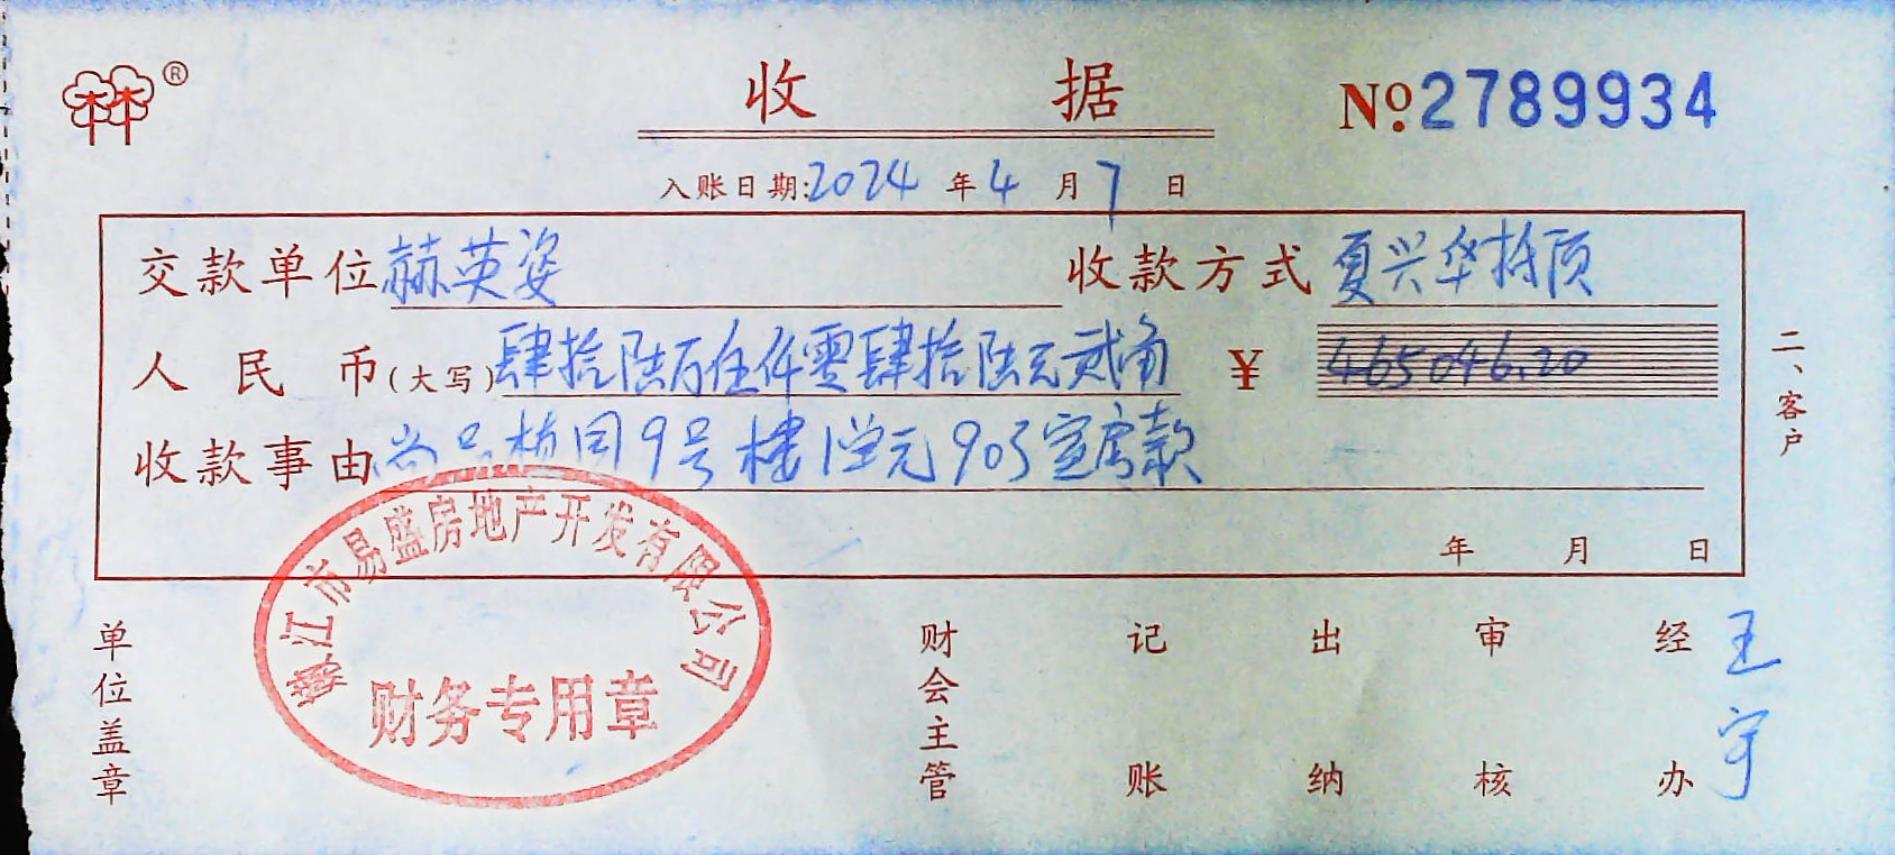 ®
收 据
No.2789934
入账日期:2024年4月7日
交款单位 赫英姿 收款方式 夏兴华抵顶
人民币(大写)肆拾陆万伍仟零肆拾陆元贰角 ¥ 465046.20
收款事由 尚品 9号楼1单元903室房款
年 月 日
二、客户
江市易盛房地产开发有限公司
财务专用章
单位盖章 财会主管 记账 出纳 审核 经办 王宇